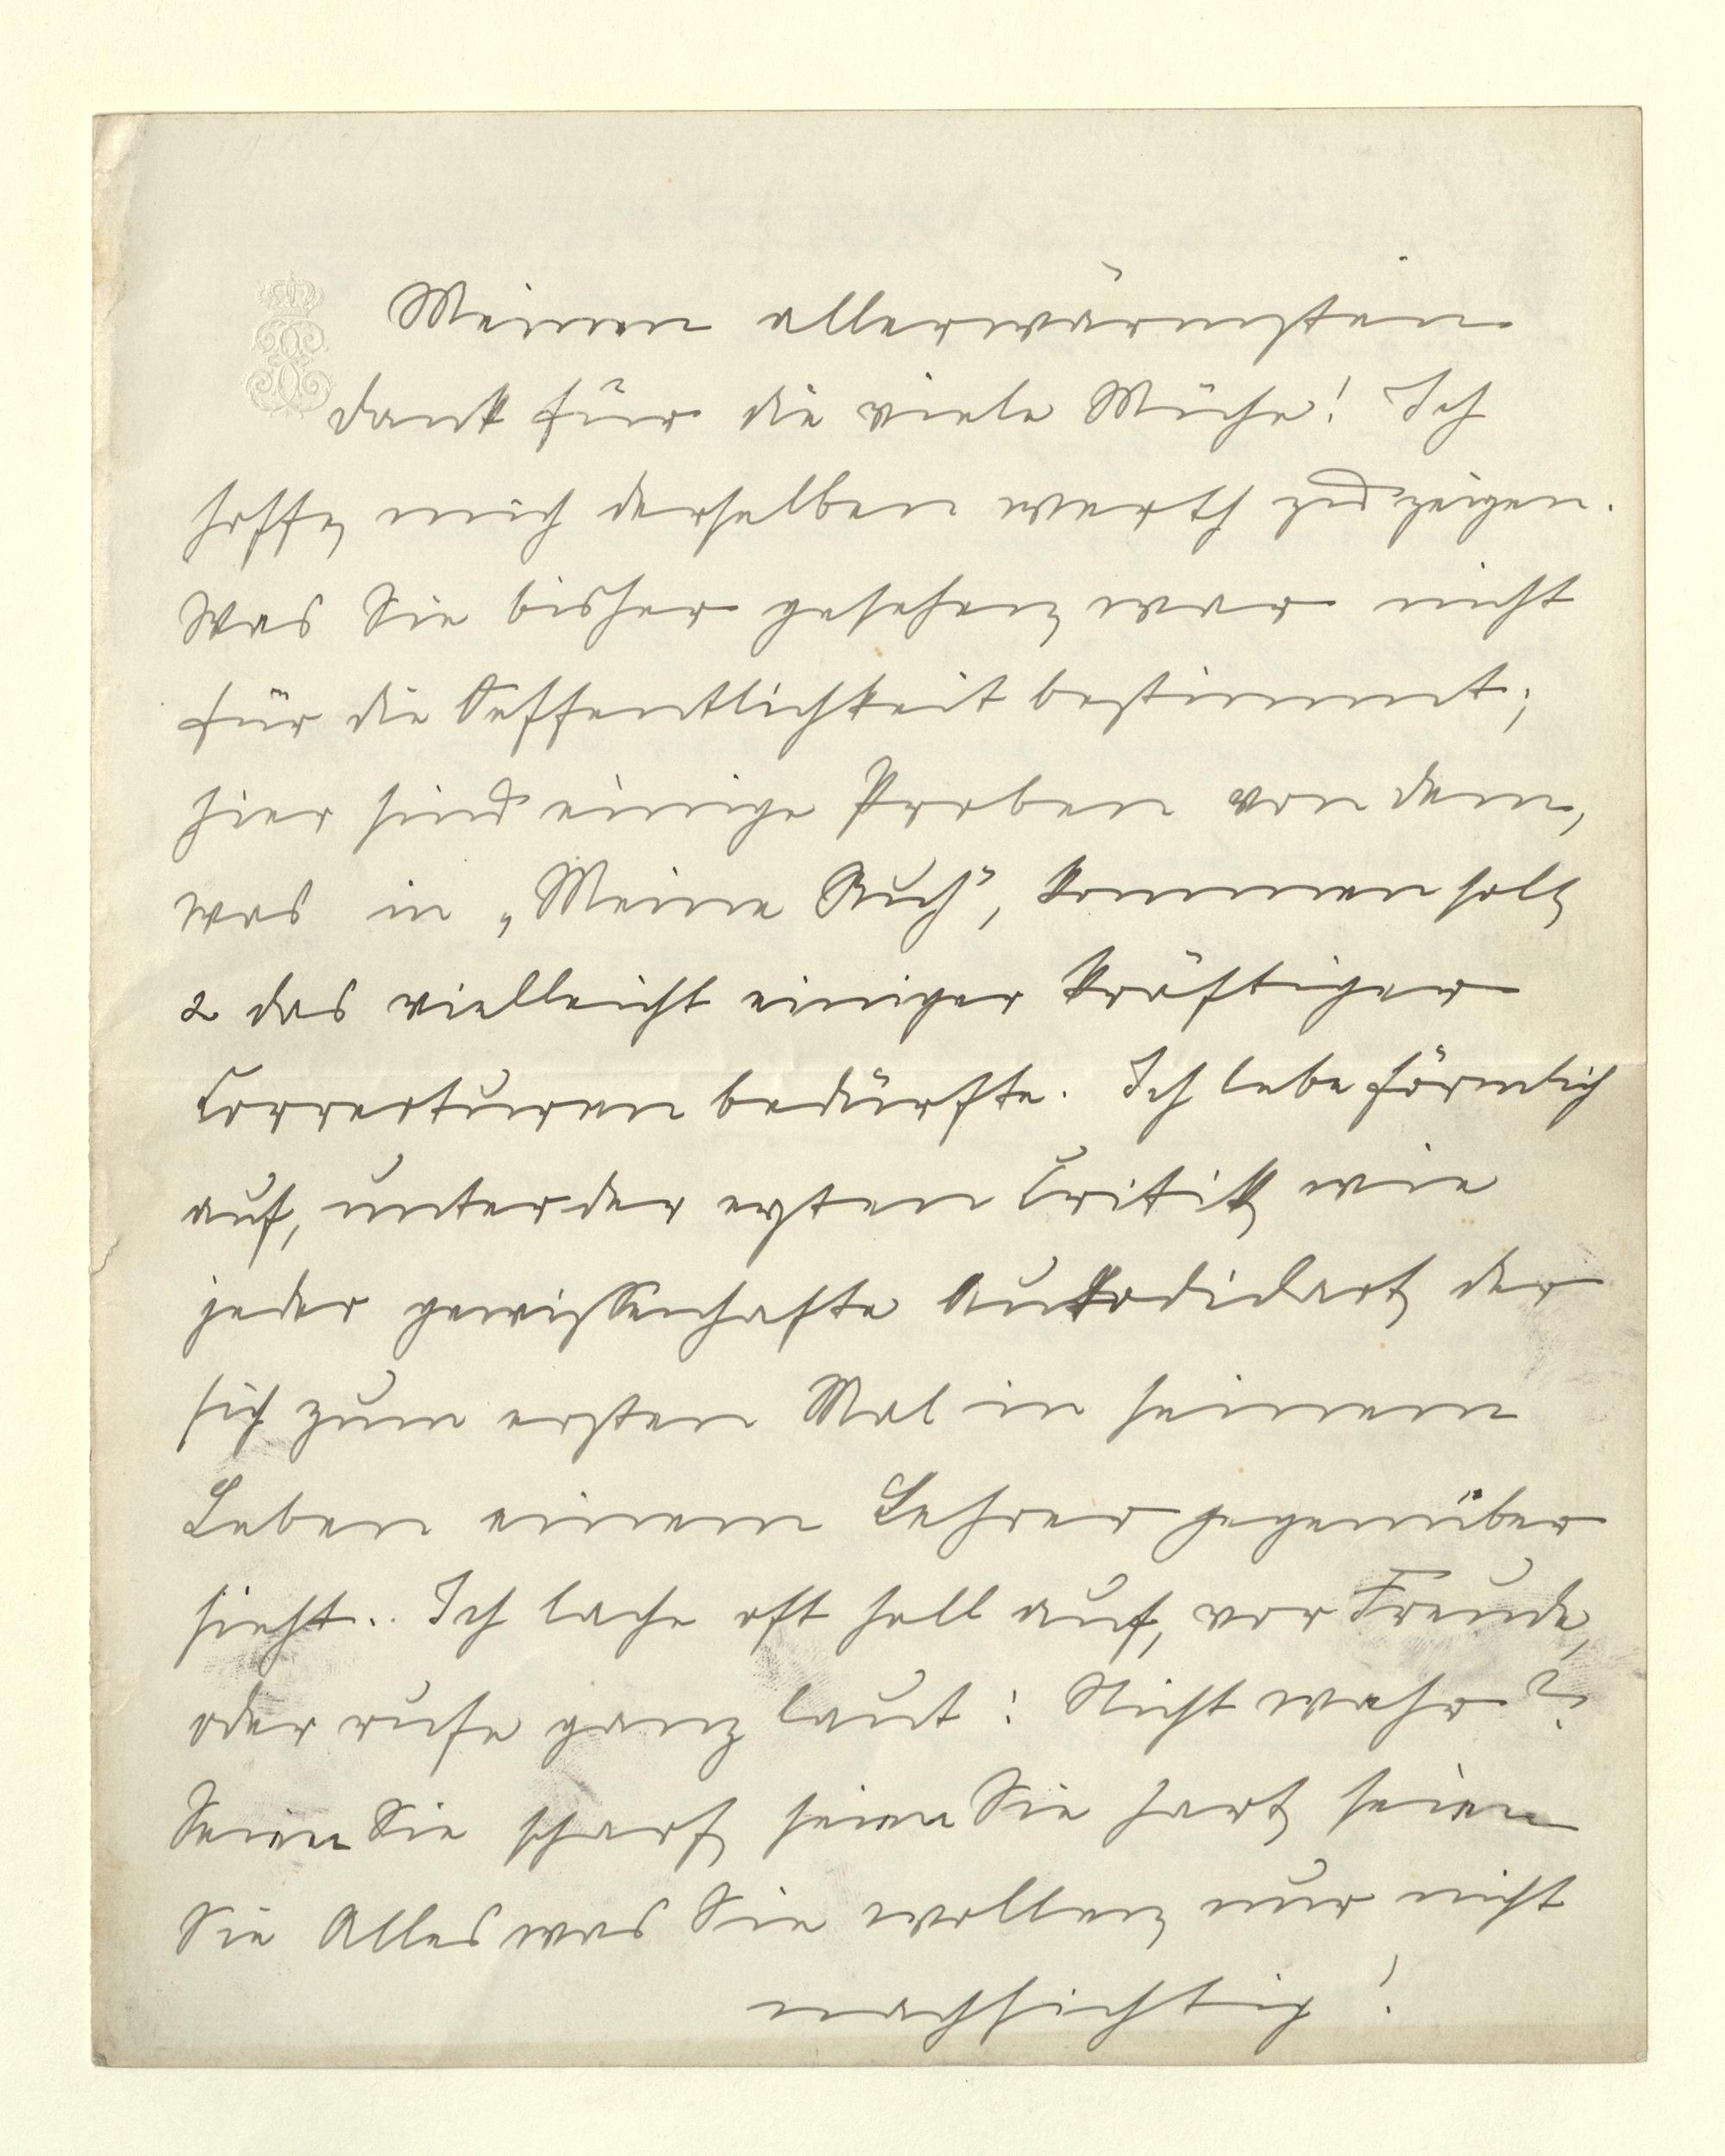 Meinen allerwärmsten
Dank für die viele Mühe! Ich
hoffe, mich derselben werth zu zeigen.
Was Sie bisher gesehen, war nicht
für die Oeffentlichkeit bestimmt;
hier sind einige Proben von dem,
was in „Meine Ruh", kommen soll,
& das vielleicht einiger kräftiger
Correcturen bedürfte. Ich lebe förmlich
auf, unter der ersten Critik, wie
jeder gewissenhafte Autodidact, der
sich zum ersten Mal in seinem
Leben einem Lehrer gegenüber
sieht.. Ich lache oft hell auf, vor Freude,
oder rufe ganz laut: Nicht wahr?
Seien Sie scharf, seien Sie hart, seien
Sie Alles was Sie wollen, nur nicht
nachsichtig!